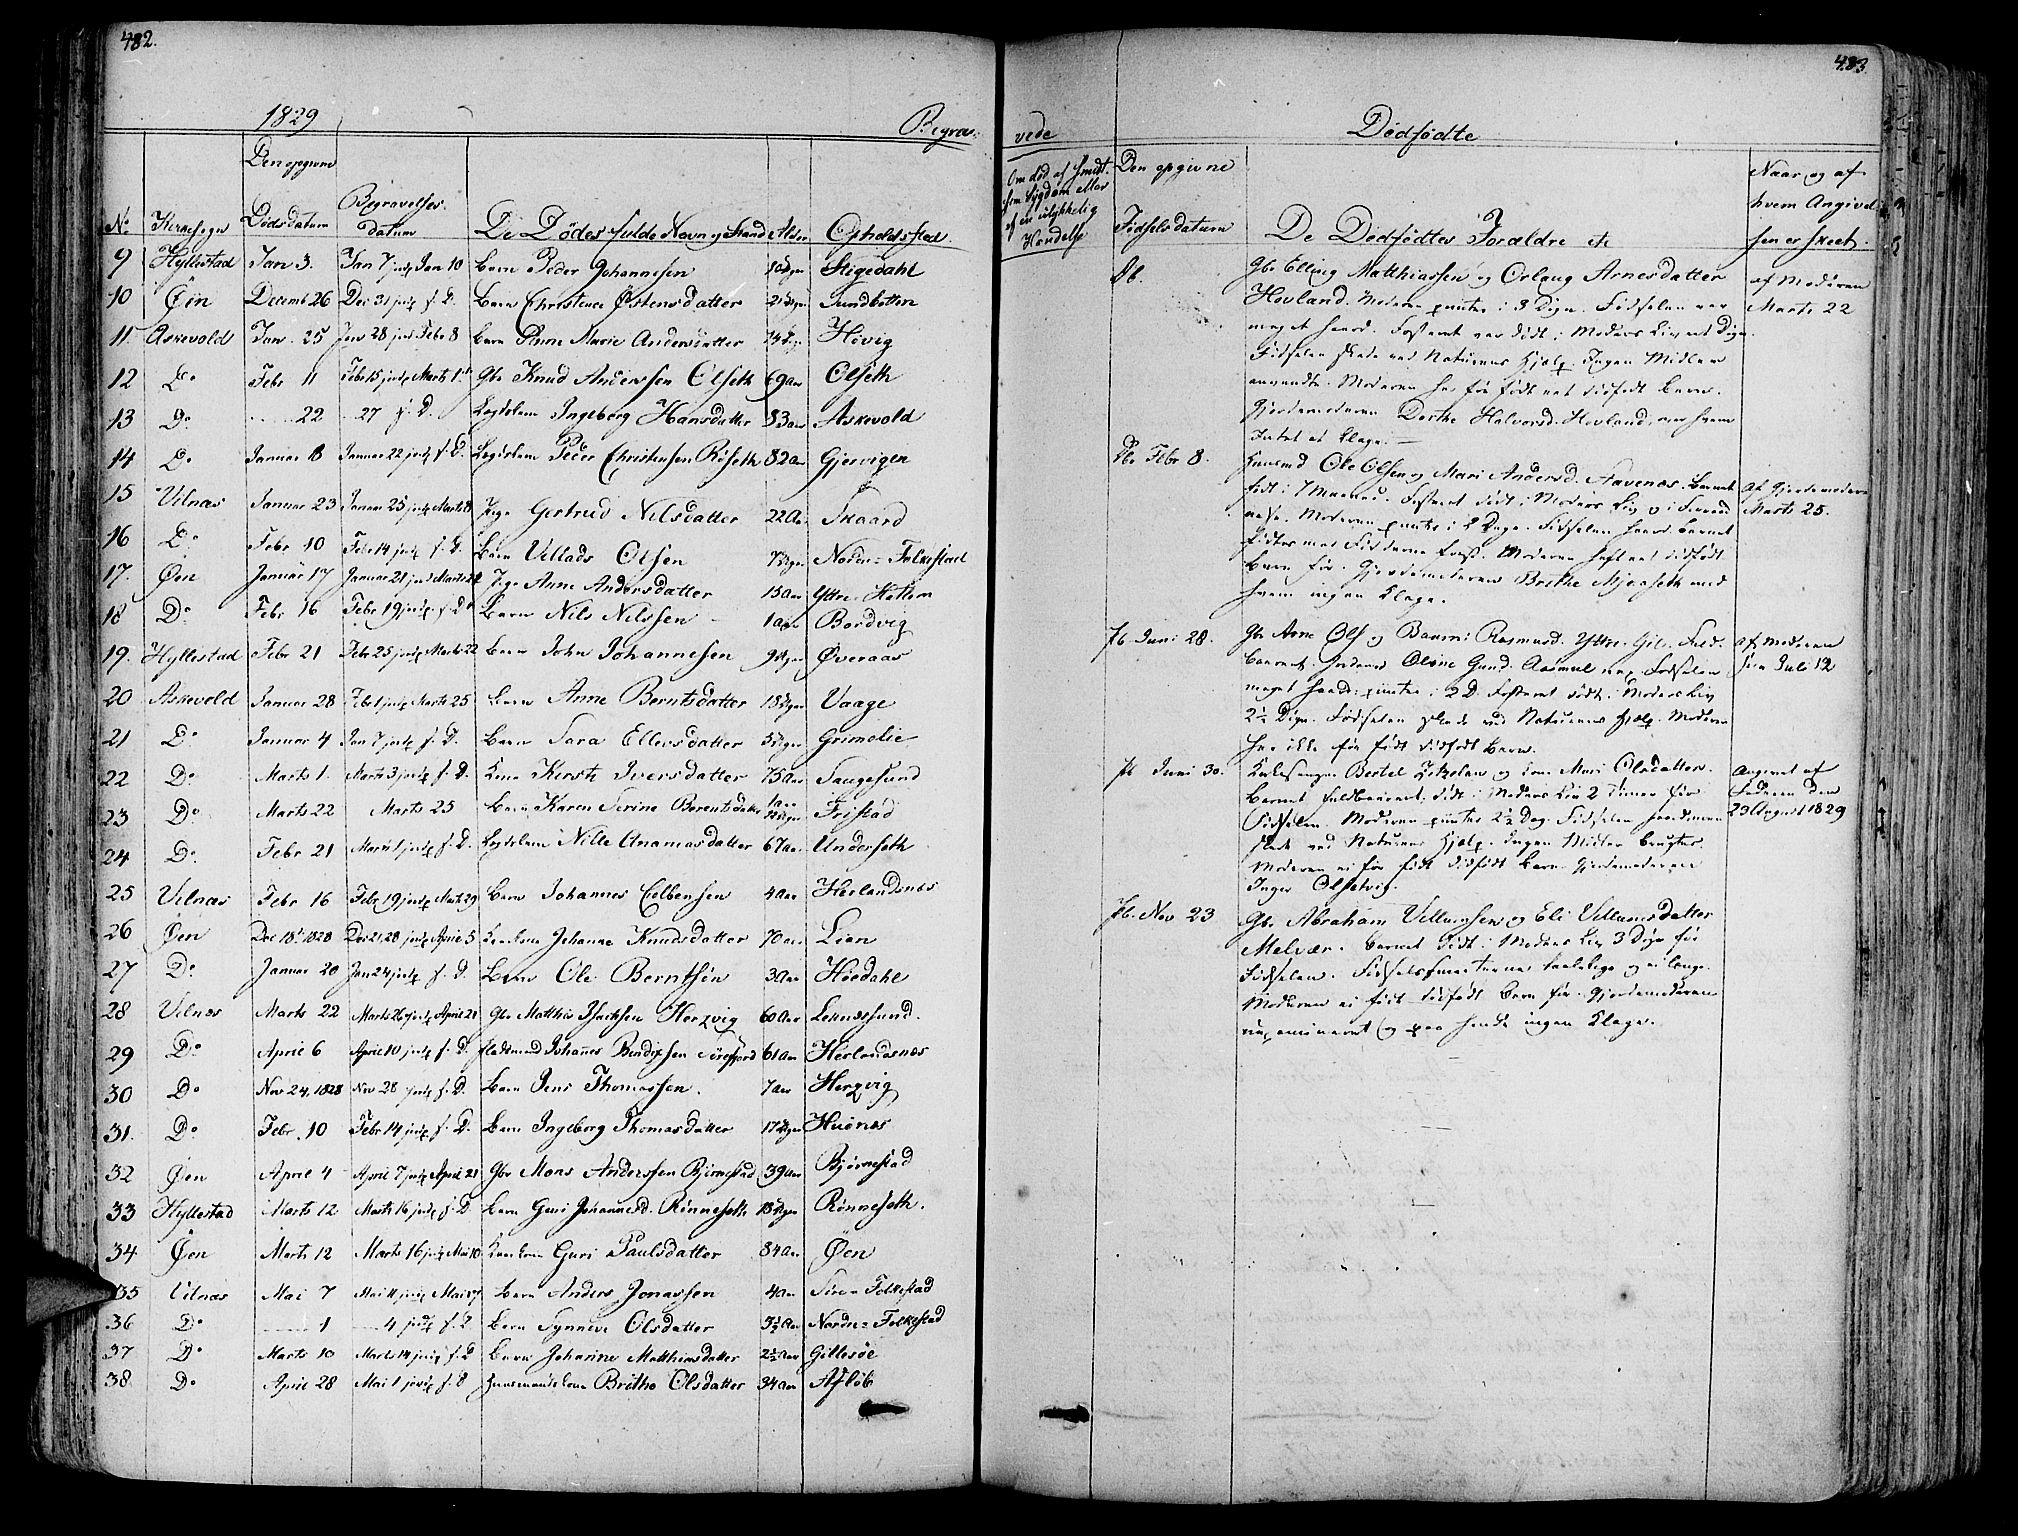 482.
1829 Begra-
No Kirkesogn Den opgivne Dødsdatum Begravelses-datum De Dødes fulde Navn og Stand Alder Opholdssted.
9 Hyllestad Jan 3. Jan 7 jordf Jan 10 Barn Peder Johannesen 10 Dage Stigedahl
10 Øen Decemb 26 Dec 31 jordf s. D. Barn Christence Østensdatter 21 Dage Sundbotten
11. Askevold Jan. 25 Jan 28 jord Febr 8 Barn Anne Marie Andersdatter 14 Dag Høvig
12 Do Febr 11 Febr 15 jordf Marts 1. Gbr Knud Andersen Olseth 69 Aar Olseth
13 Do 22 27 s. D. Lægdslem Ingeborg Hansdatter 83 Aar Askevold
14 Do Januar 18 Januar 22 jordf s. D. Lægdslem Peder Christensen Røseth 82 Aar Gjervigen
15 Vilnæs Januar 23 Januar 25 jordf Marts 8 Pige Gertrud Nilsdatter 22 Aar Skaard
16 Do Febr 10 Febr 14 jordf s. D. Barn Villads Olsen 7 Dage Nordre Folkestad
17. Øen Januar 17 Januar 21 jord Marts Pige Anne Andersdatter 15 Aar Yttre Hellem
18 Do Febr 16 Febr 19 jordf s. D. Barn Nils Nilssen 1 Aar Bordvig
19. Hyllestad Febr 21 Febr 25 jordf Marts 22 Barn John Johannesen 9 Dage Øveraas
20 Askevold Januar 28 Feb 1 jordf Marts 25 Barn Anne Berntsdatter 18 Dage Vaage
21 Do Januar 4 Jan 7 jordf s. D. Barn Sara Ellensdatter 5 Dage Grimelie
22 Do Marts 1. Marts 3 jordf s. D. Kone Kersti Iversdatter 75 Aar Saugesund
23 Do Marts 22 Marts 25 Barn Karen Serine Berentsdatter 1 Aar Fristad
24 Do. Febr 21 Marts 1 jordf s. D. Lægdslem Nille Unamasdatter 67 Aar Underseth
25 Vilnæs Febr 16 Febr 19 jordf Marts 29 Barn Johannes Eelbensen 4 Aar Herlandsnæs
26 Øen Dec 18. 1828 Dec 21, 28 jordf April 5 Johanne Knudsdatter 70 Aar Lien
27 Do Januar 20 Jan 24 jordf s. D. Barn Ole Berntsøn 3 Aar Høedahl
28 Vilnæs Marts 22 Marts 26 jordf April 21 Gbr Matthis Isachsen Herqvig 60 Aar Leknæssund.
29 Do April 6 April 10 jordf s. D. Pladsmand Johannes Bendixsen Sørefjord 61 Aar Herlandsnæs
30 Do Nov 24, 1828 Nov 28 jordf s. D. Barn Jens Thomassen. 7 Aar Herqvig
31. Do Febr. 10 Febr 14 jordf s. D. Barn Ingeborg Thomasdatter 17 Dage Husnæs
32 Øen April 4 April 7 jordf April 21 Gbr Mons Anderssen Bjørnestad 39 Aar Bjørnestad
33 Hyllestad Marts 12 Marts 16 jordf s. D Barn Guri Johannesd. Rønneseth 18 Dage Rønneseth.
34 Øen Marts 12 Marts 16 jordf Mai 10 Guri Paulsdatter 84 Aar Øen
35 Vilnæs Mai 7 Mai 11 jordf Mai 17 Barn Anders Jonassen 4 Aar Søre Folkestad
36 Do 1 4 jordf s. D Barn Synneve Olsdatter 3½ Aar Nordre Folkestad
37 Do Marts 10 Marts 14 jordf s. D Barn Johanne Matthiasdatter 2½ Aar Gillesøe
38. Do April 28 Mai 1 jordf s. D Huusmandskone Brithe Olsdatter 34 Aar Afløb
483.
vede Dødfødte
Om død af smit-
som Sygdom eller
af en ulykkelig
Hændelse
Den opgivne Fødselsdatum
De Dødfødtes Forældre etc
Naar og af
hvem Angivel-
sen er skeet.
Gbr Elling Matthiassen og Orlaug Arnesdatter
Hovland. Moderen i 3 Dage. Fødselen var
meget haard. Fosteret var dødt i Moders Liv et Døgn.
Fødselen skede ved Naturens Hjælp. Ingen Midler
anvendte. Moderen har før født et dødfødt Barn.
Gjordemoderen Dorthe Halvorsd. Hovland, over hvem
Intet at klage.
af Moderen
Marts 22
Febr 8.
Huusmd Ole Olsen og Mari Andersd. Aavenæs. Barnet
født i 7 Maaned. Fosteret dødt i Moders Liv
Moderen i 2 Dage. Fødselen haard. Barnet
fødtes med Fødderne først. Moderen havt et dødfødt
Barn før. Gjordemoderen Brithe Mjaaseth mod
hvem ingen Klage.
af Gjordemoderen
Marts 25.
Juni 28.
Gbr Arne Ols og Rasmusd. Yttre
Barnet. Jordemd Oline Gund. Aasmul Fødselen
meget haard: i 2 D. Fosteret dødt i Moders Liv
2½ Døgn. Fødselen skede ved Naturens Hjælp. Moderen
har ikke før født dødfødt Barn.
af Moderen
Juli 12
Juni 30.
Kirkesanger Bertel og Kone Mari Olsdatter.
Barnet fuldbaaret, dødt i Moders Liv 2 Timer før
Fødselen. Moderen 2½ Dag. Fødselen
skede ved Naturens Hjælp. Ingen Midler brugtes.
Moderen ei før født dødfødt Barn. Gjordemoderen
Inger Olsetvig.
Angivet af
Faderen den
23 August 1829
Nov 23
Gbr Abraham Villumsen og Eli Villumsdatter
Melvær. Barnet dødt i Moders Liv 3 Dage før
Fødselen. Fødselssmerterne taalelige og ei lange.
Moderen ei født dødfødt Barn før. Gjordemoderen
examineret og paa hende ingen Klage.